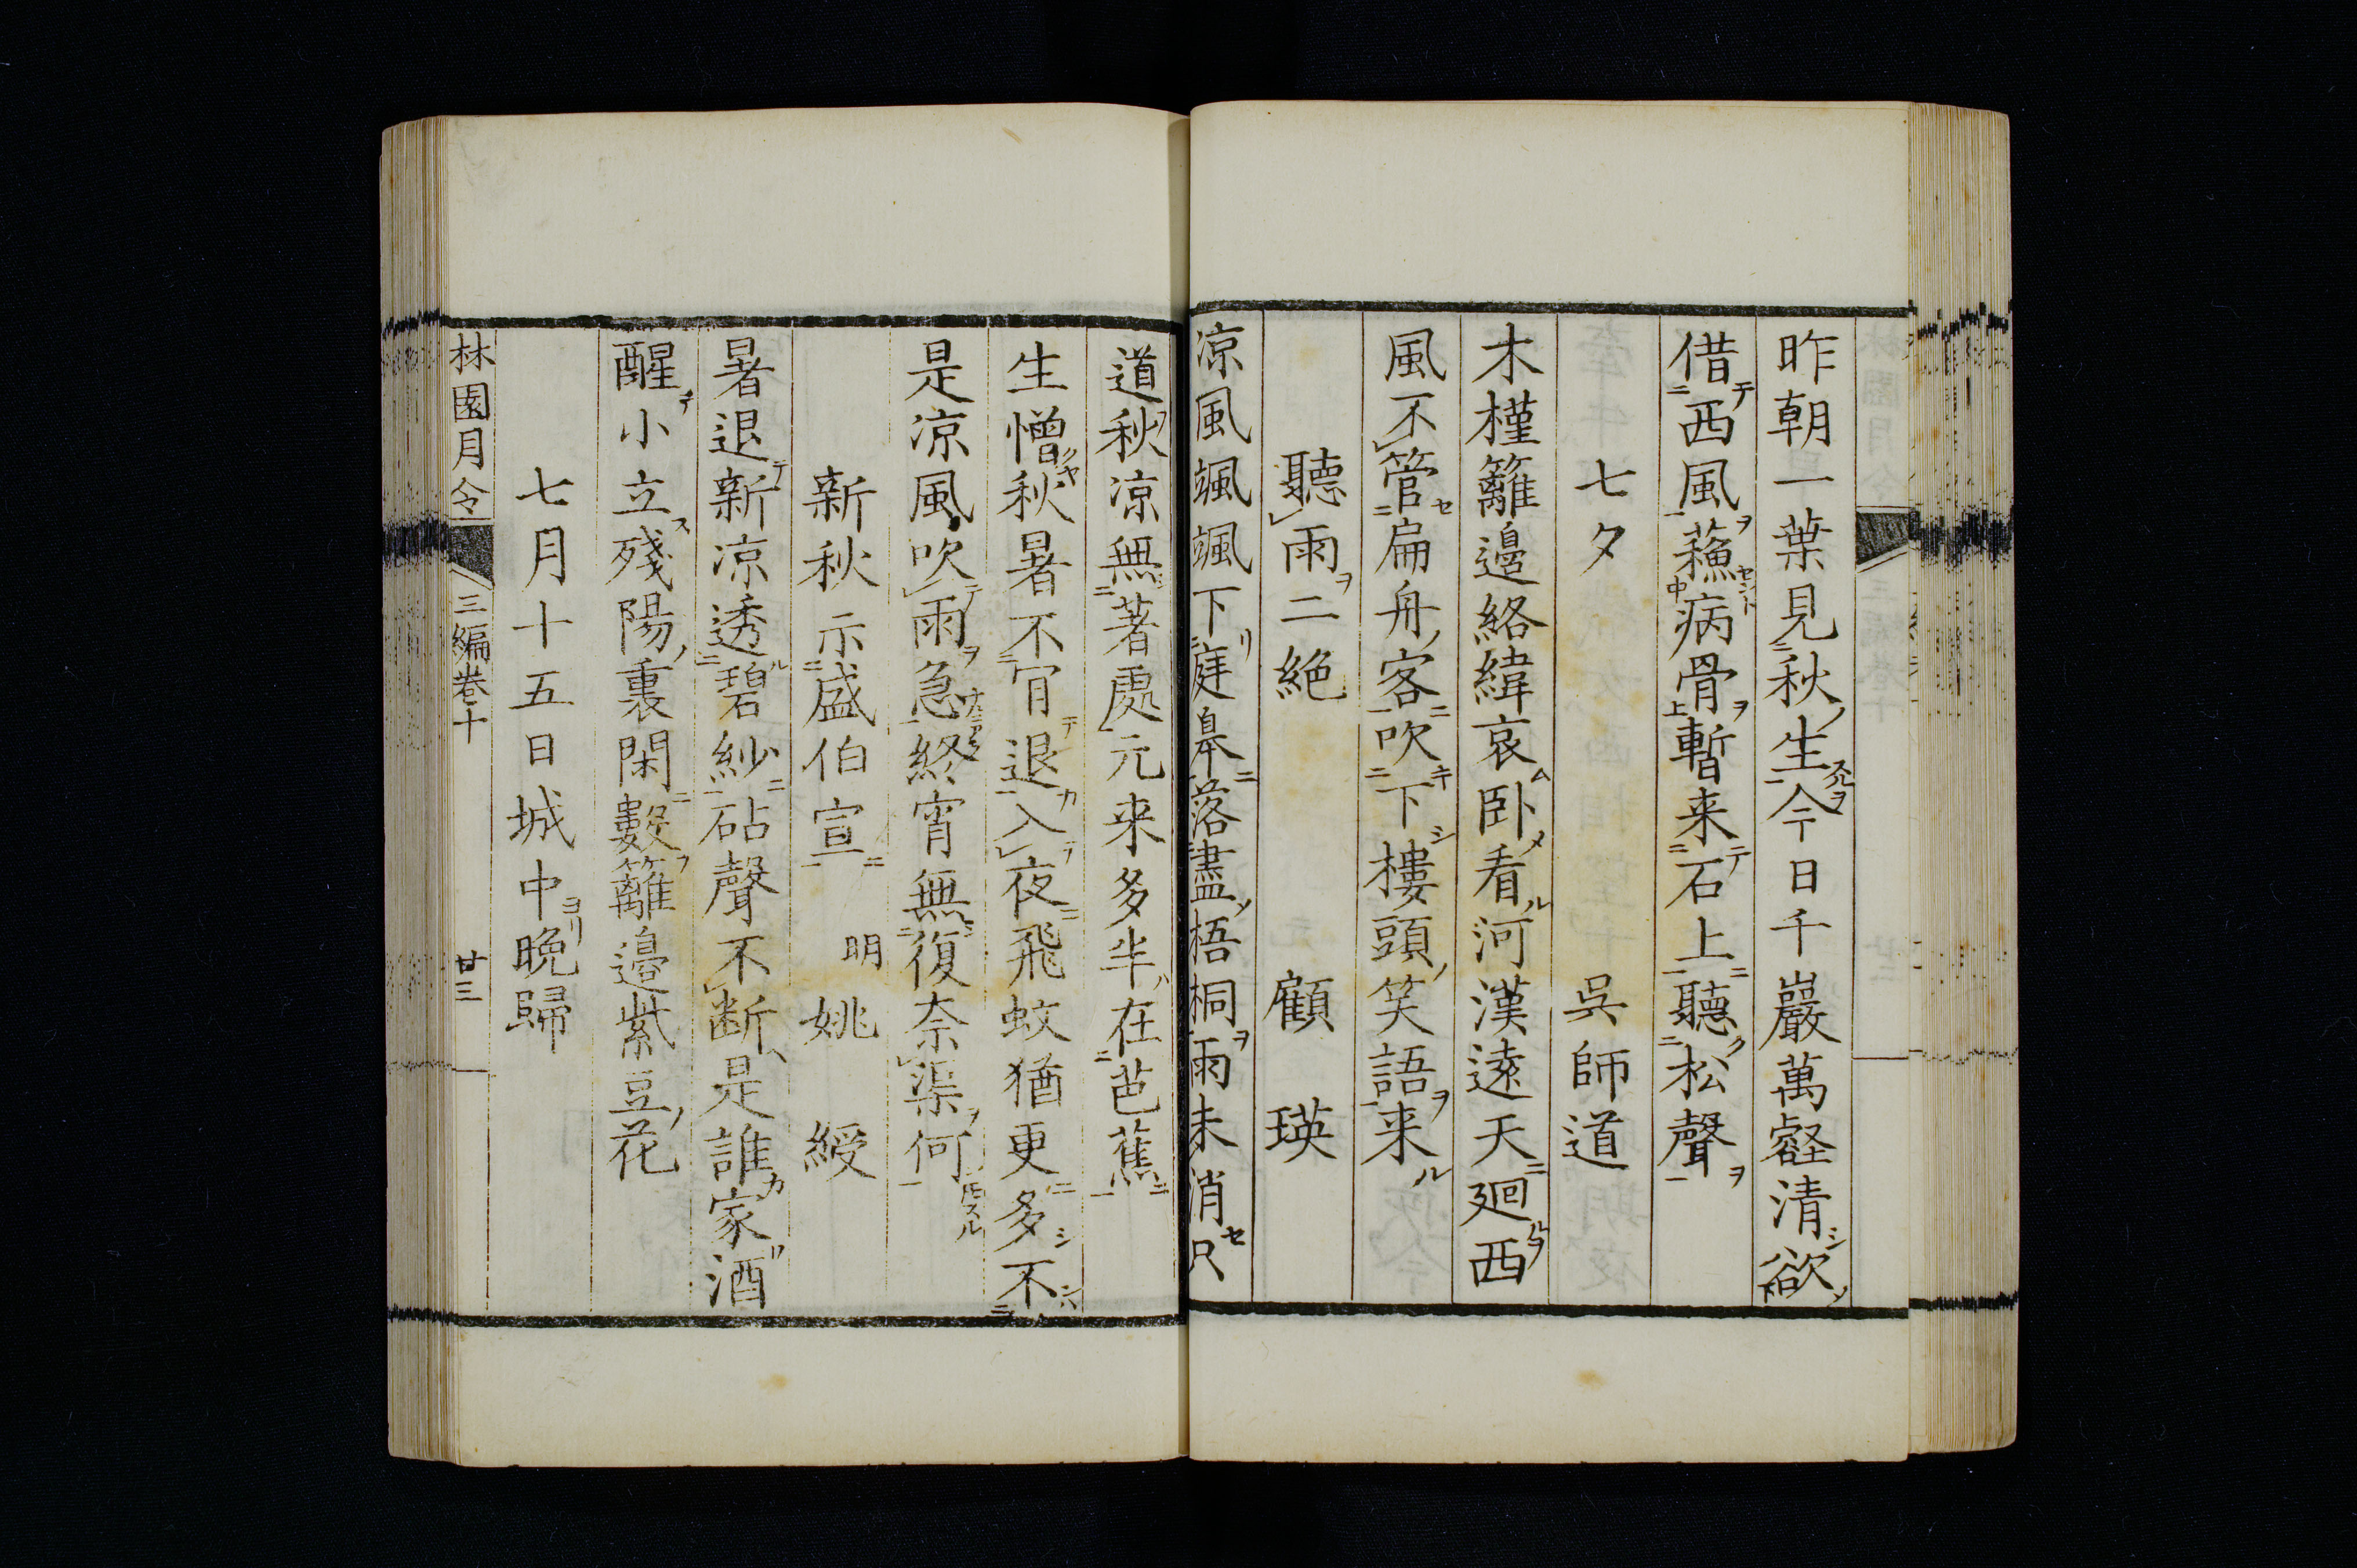 昨朝一葉見秋生今日千巖萬壑清欲
借西風蘓病骨暫来石上聽松聲
七夕 呉師道
木槿籬邉絡緯哀卧看河漢遠天廻西
風不管扁舟客吹下樓頭笑語来
聽雨二絶 顧瑛
凉風颯颯下庭皐落盡梧桐雨未消只
道秋凉無著處元来多半在芭蕉
生憎秋暑不肎退入夜飛蚊猶更多不
是凉風吹雨急終宵無復奈渠何
新秋示盛伯宣 明 姚綬
暑退新凉透碧紗砧聲不断是誰家酒
醒小立殘陽裏閑數籬邉紫豆花
七月十五日城中晩歸
林園月令 三編巻十 廿三